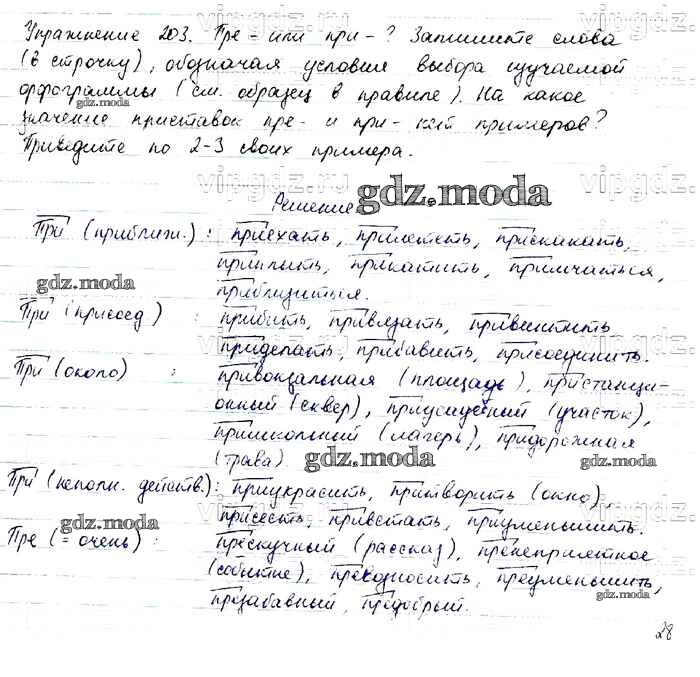 Упражнение 203. Пре- или при-? Запишите слова
(в строчку), обозначая условия выбора изучаемой
орфограммы (см. образец в правиле). На какое
значение приставок пре- и при- нет примеров?
Приведите по 2-3 своих примера.
Решение
При (приближ.): приехать, прилететь, прискакать,
приплыть, прикатить, примчаться,
приблизиться.
При (присоед) : прибить, привязать, привинтить
приделать, прибавить, присоединить.
При (около) : привокзальная (площадь), пристанци-
онный (сквер), приусадебный (участок),
пришкольный (лагерь), придорожная
(трава).
При (неполн. действ.): приукрасить, притворить (окно),
присесть, привстать, приуменьшить.
Пре (= очень) : прескучный (рассказ), пренеприятное
(событие), преподносить, преуменьшить,
презабавный, предобрый.
28
gdz.moda
gdz.moda
gdz.moda
gdz.moda
gdz.moda
gdz.moda
gdz.moda
gdz.moda
vipgdz.ru
vipgdz.ru